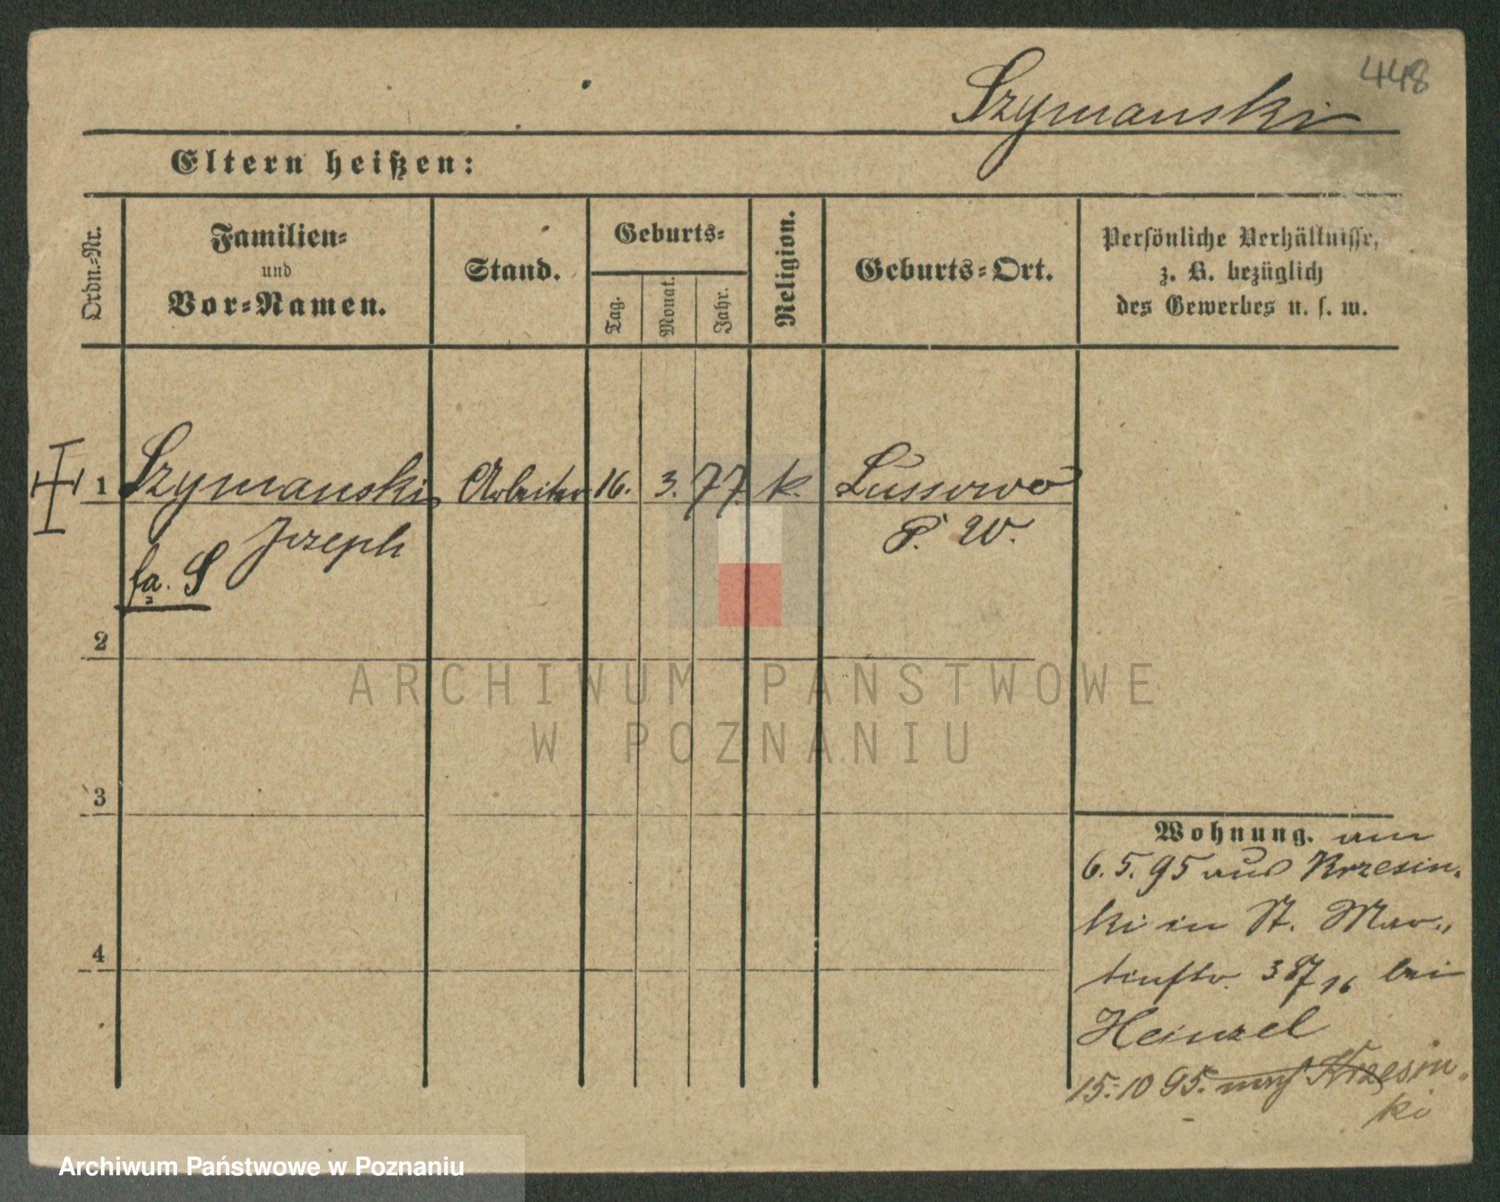 448
Szymanski
Eltern heißen:
Ordn.-Nr.
Familien-
und
Vor-Namen.
Stand.
Geburts-
Tag.
Monat.
Jahr.
Religion.
Geburts-Ort.
Persönliche Verhältnisse,
z. B. bezüglich
des Gewerbes u. s. w.
1 Szymanski Arbeiter 16. 3. 77 k. Lussowo
Jozeph P. W.
fa. S
2
3
4
Wohnung. am
6. 5. 95 aus Krzesin-
ki in St. Mar-
tinstr. 16 bei
Heinzel
15.10 95. nach Krzesin-
ki
ARCHIWUM PAŃSTWOWE
W POZNANIU
Archiwum Państwowe w Poznaniu